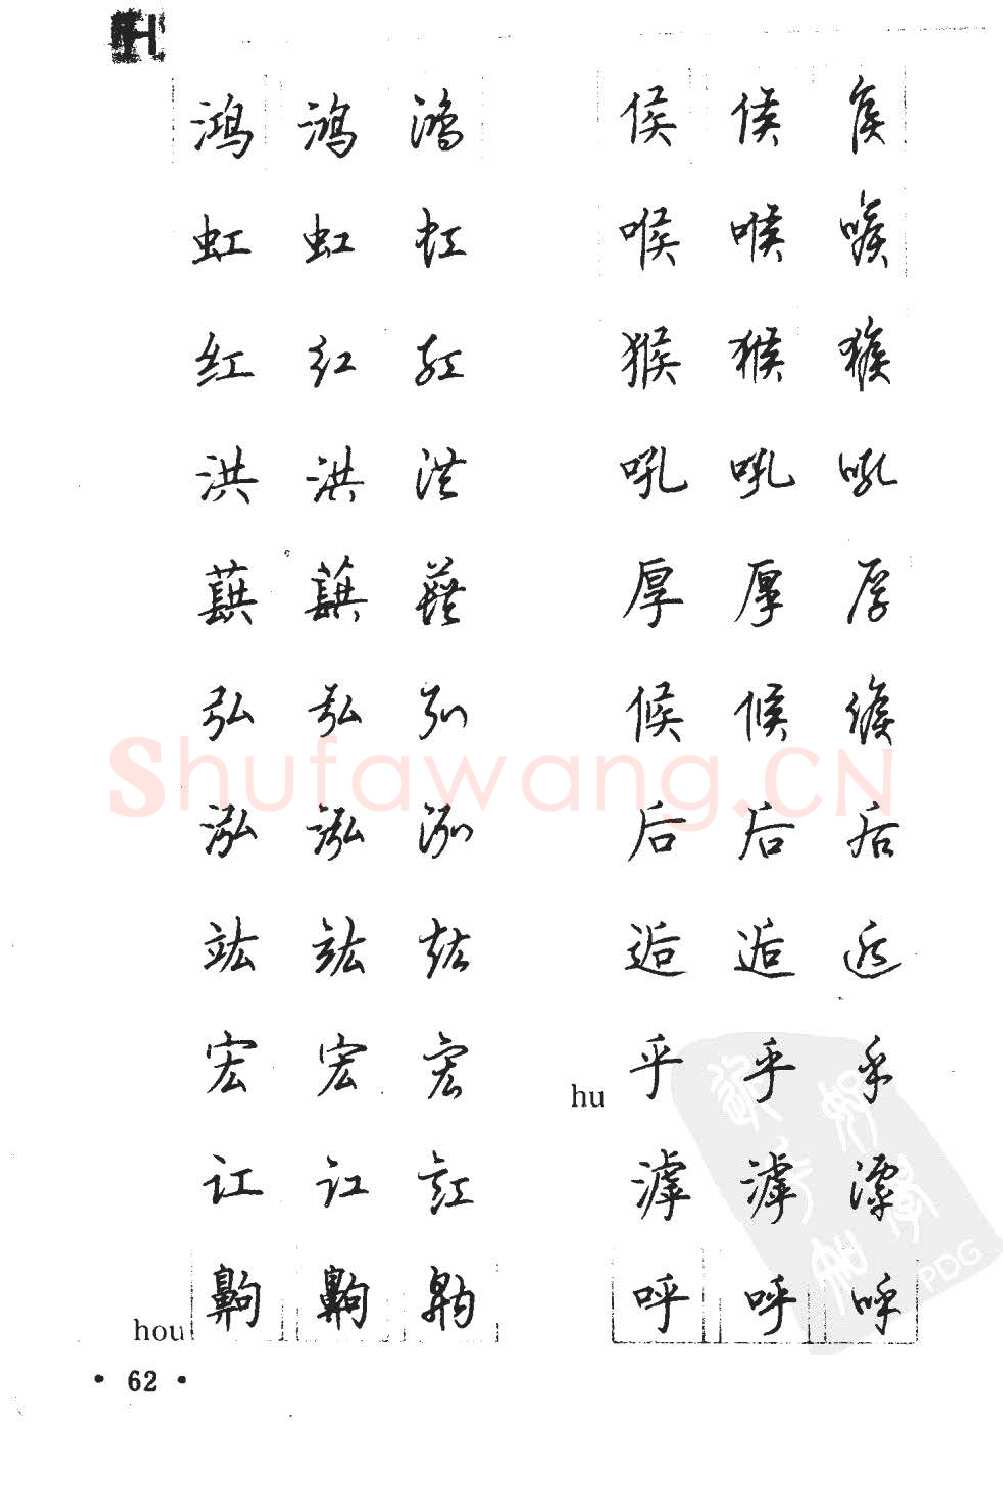 H
鸿 鸿 鸿
虹 虹 虹
红 红 红
洪 洪 洪
蕻 蕻 蕻
弘 弘 弘
泓 泓 泓
竑 竑 竑
宏 宏 宏
讧 讧 讧
hou 齁 齁 齁
侯 侯 侯
喉 喉 喉
猴 猴 猴
吼 吼 吼
厚 厚 厚
候 候 候
后 后 后
逅 逅 逅
hu 乎 乎 乎
滹 滹 滹
呼 呼 呼
• 62 •
Shufawang.CN
PDG